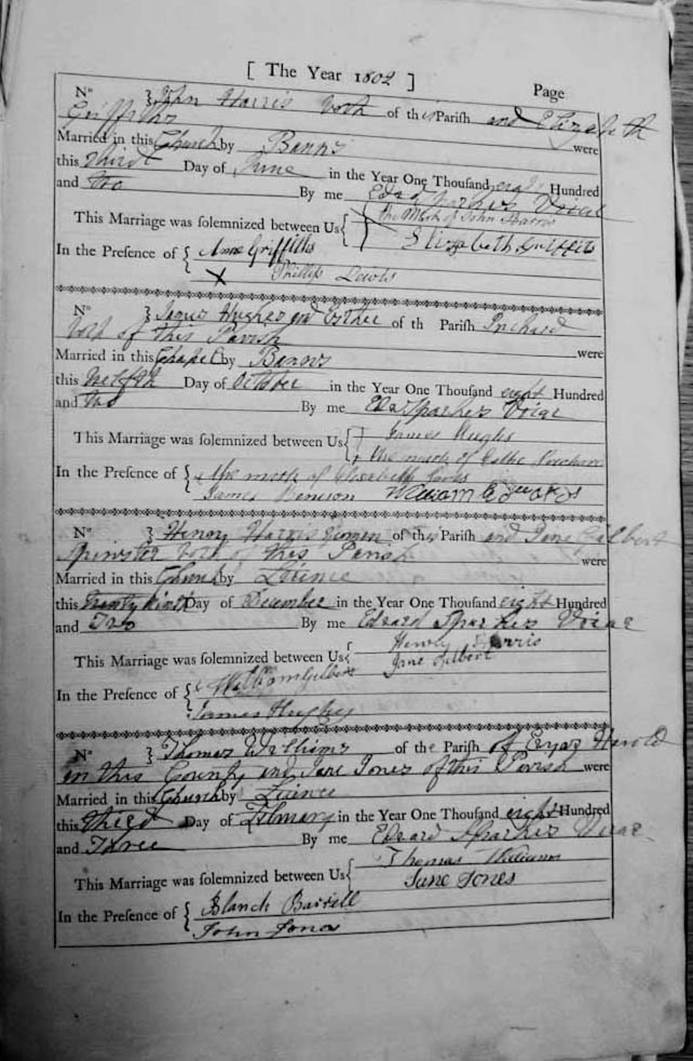 [ The Year 1802 ]
Page
No } John Harris both of this Parish and Elizabeth
Griffiths
Married in this Church by Banns were
this third Day of June in the Year One Thousand Hundred
and two By me Sparkes
This Marriage was solemnized between Us { the Mark of John Harris
Elizabeth
In the Presence of { Ann Griffiths
X Phillip Lewis
No } James Hughes and Esther of th Parish Prichard
both of this Parish
Married in this Chapel by Banns were
this twelfth Day of October in the Year One Thousand eight Hundred
and two By me Sparkes
This Marriage was solemnized between Us { James Hughs
the mark of
In the Presence of { the mark of Elizabeth
James William Edwards
No } Henry Harris of this Parish and Jane Gilbert
Spinster both of this Parish
were
Married in this Church by Leience
this Twenty Ninth Day of December in the Year One Thousand eight Hundred
and Two By me Edward Sparkes
This Marriage was solemnized between Us { Henry Harris
Jane Gilbert
In the Presence of { William Gilbert
James Hughes
No } Thomas Williams of the Parish of Harold
in this County and Jane Jones of this Parish were
Married in this Church by Leience
this third Day of in the Year One Thousand eight Hundred
and Three By me Edward Sparkes
This Marriage was solemnized between Us { Thomas Williams
Jane Jones
In the Presence of { Blanch Barrell
John Jones